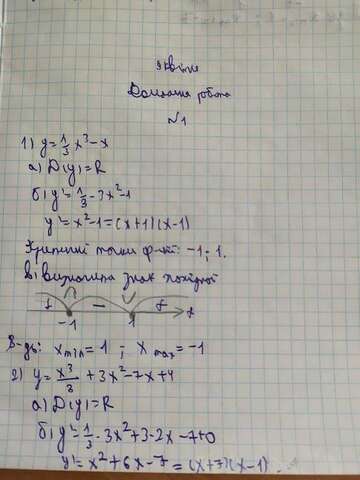 9 квітня
Домашня робота
№1
1) y=1/3 x³-x
а) D(y)=R
б) y'=1/3·3x²-1
y'=x²-1=(x+1)(x-1)
Критичні точки ф-ції: -1; 1.
в) Визначила знак похідної
+ - +
-1 1 x
В-дь: x min=1 ; x max=-1
2) y=x³/3+3x²-7x+4
а) D(y)=R
б) y'=1/3·3x²+3·2x-7+0
y'=x²+6x-7=(x+7)(x-1).